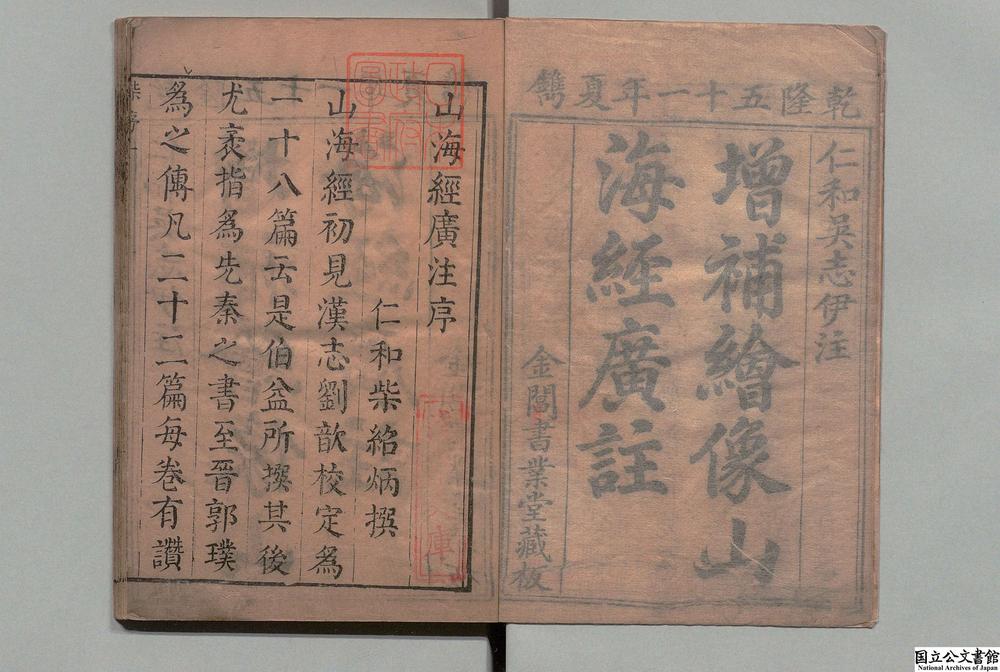 乾隆五十一年夏鐫
仁和吳志伊注
增補繪像山
海經廣註
金閶書業堂藏板
山海經廣注序
仁和柴紹炳撰
山海經初見漢志劉歆校定爲
一十八篇云是伯益所撰其後
尤袤指爲先秦之書至晉郭璞
爲之傳凡二十二篇每卷有讚
国立公文書館
National Archives of Japan